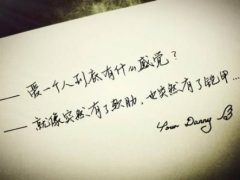 ——爱一个人到底有什么感觉？
——就像突然有了软肋，也突然有了铠甲…
Your Danny